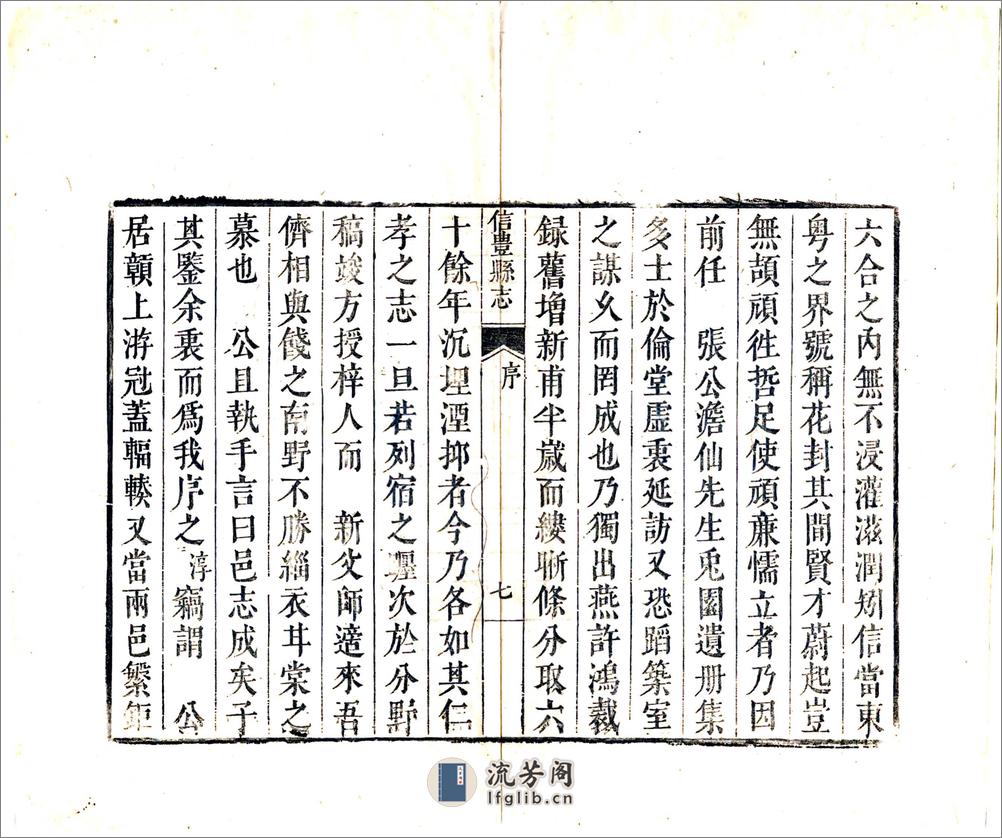 六合之內無不浸灌滋潤矧信當東
粵之界號稱花封其間賢才蔚起豈
無頡頏徃哲足使頑亷懦立者乃因
前任　張公澹仙先生兎園遺册集
多士於倫堂虛裏延訪又恐蹈築室
之謀久而罔成也乃獨出燕許鴻裁
録舊增新甫半嵗而縷晰條分取六
信豐縣志
序
七
十餘年沉埋湮抑者今乃各如其仁
孝之志一旦若列宿之躔次於分野
稿竣方授梓人而　新父師適來吾
儕相與餞之南野不勝緇衣甘棠之
慕也　公且執手言曰邑志成矣子
其鑒余裏而爲我序之淳竊謂　公
居贑上游冠蓋輻輳又當兩邑繁鉅
流芳阁
lfglib.cn